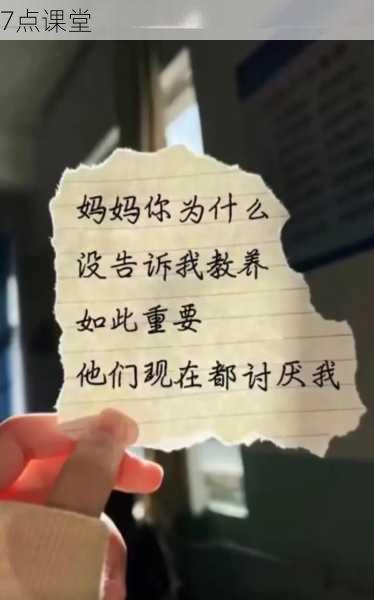 7点课堂
妈妈你为什么
没告诉我教养
如此重要
他们现在都讨厌我